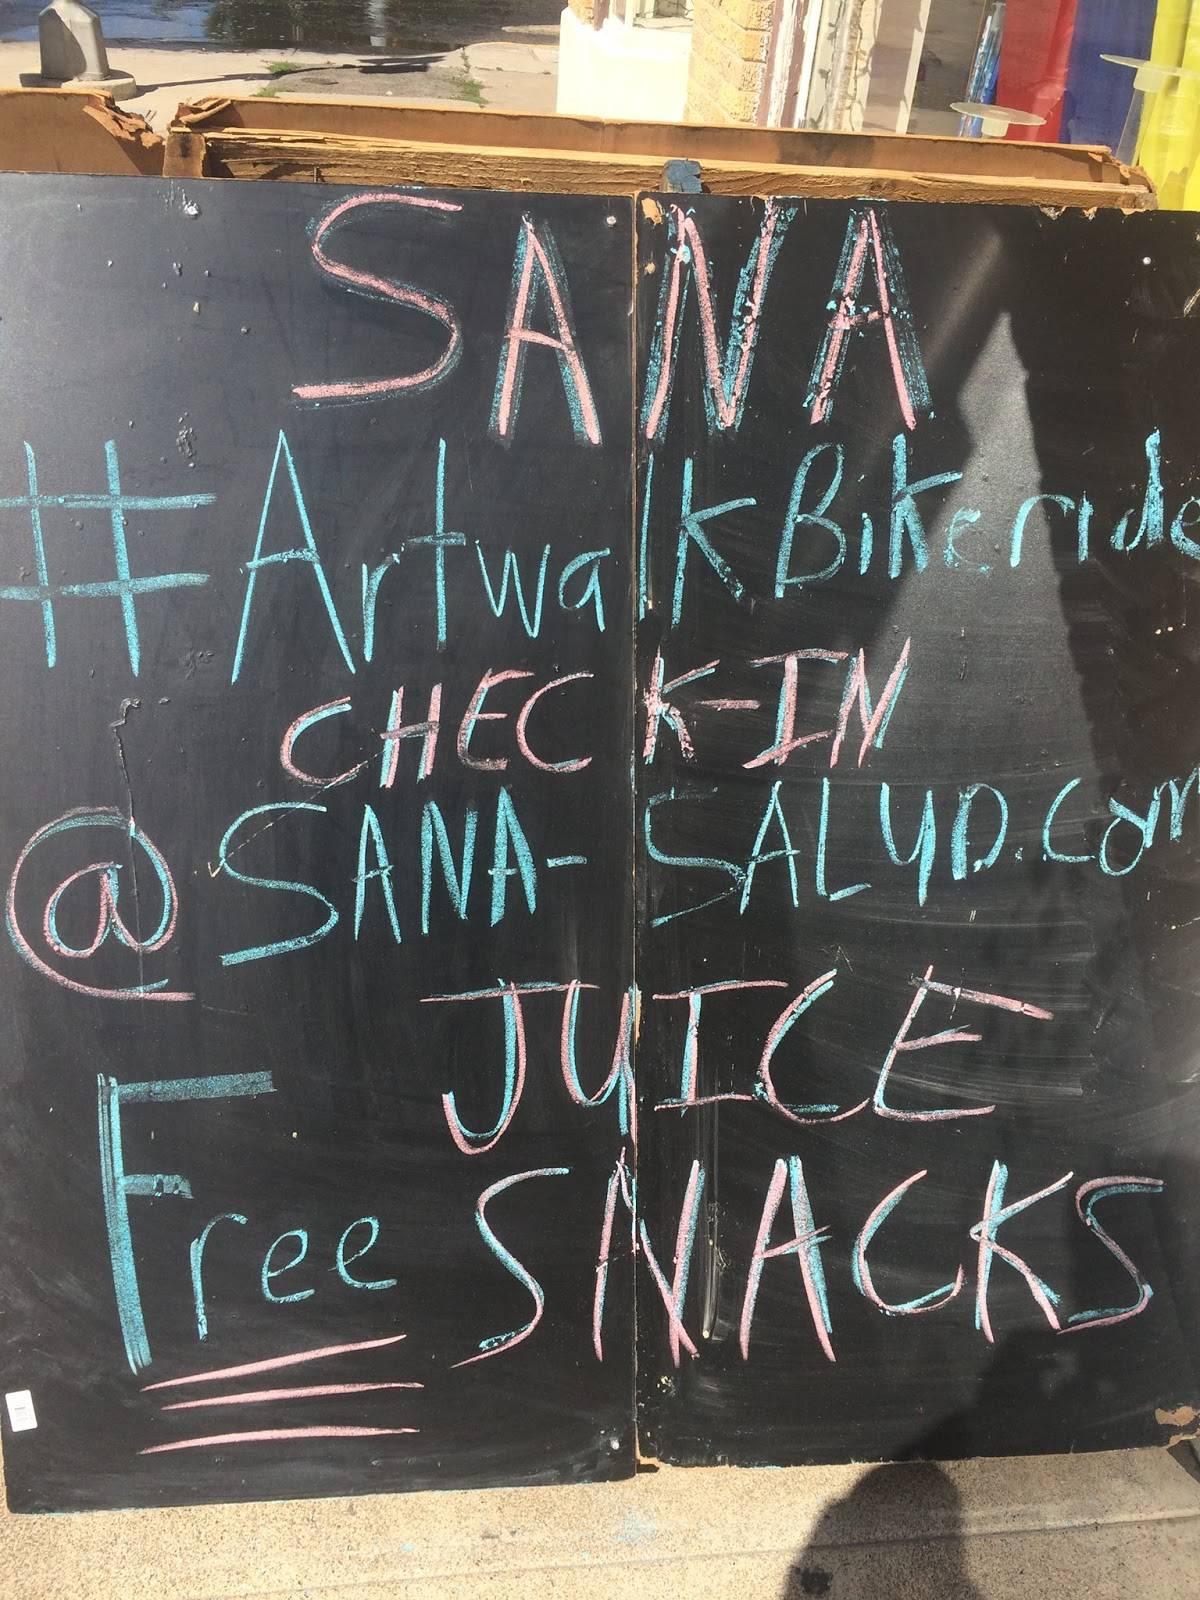 SANA
#ArtwalkBikeride
CHECK-IN
@SANA-SALUD.COM
JUICE
Free SNACKS